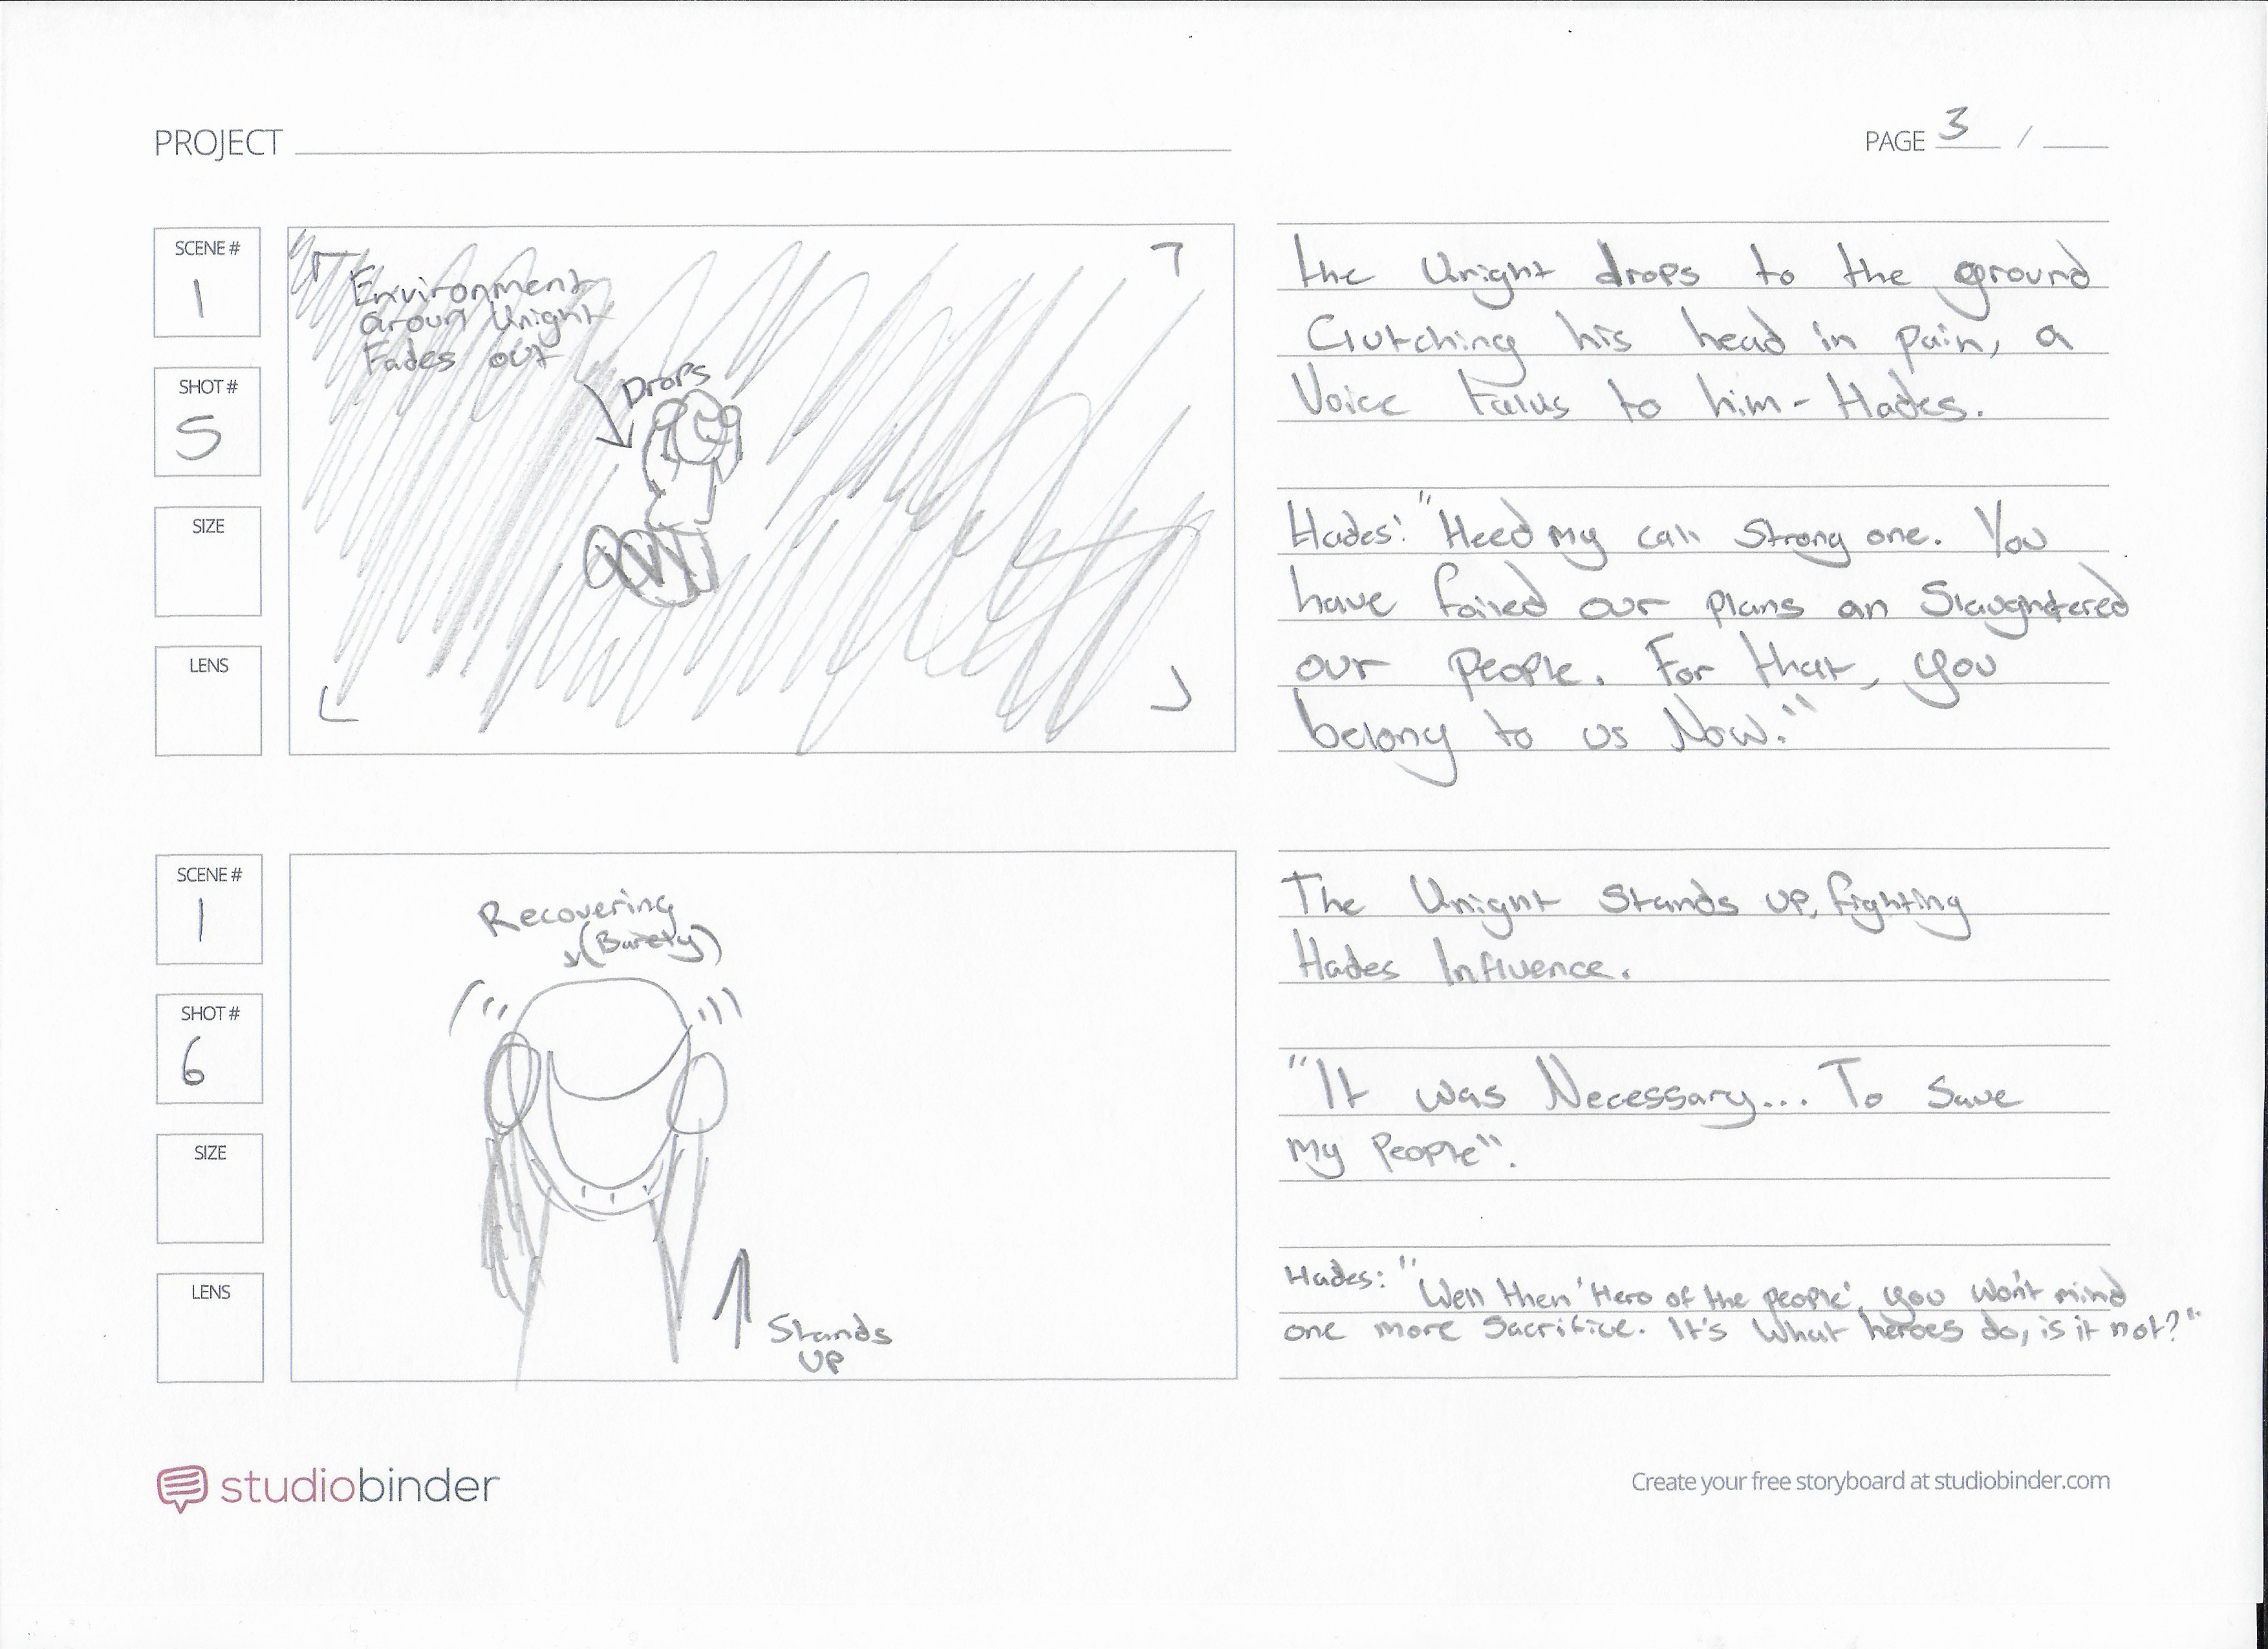 PROJECT
PAGE 3 /
SCENE #
1
SHOT #
5
SIZE
LENS
Environment
aroun Knight
Fades out
Drops
the Knight drops to the ground
Clutching his head in pain, a
Voice talks to him - Hades.
Hades: "Heed my call strong one. You
have foiled our plans an Slaughtered
our people. For that, you
belong to us Now."
SCENE #
1
SHOT #
6
SIZE
LENS
Recovering
(Barely)
Stands
up
The Knight Stands up, fighting
Hades Influence.
"It was Necessary... To save
my people".
Hades: "Well then 'Hero of the people', you won't mind
one more Sacrifice. It's what heroes do, is it not?"
studiobinder
Create your free storyboard at studiobinder.com